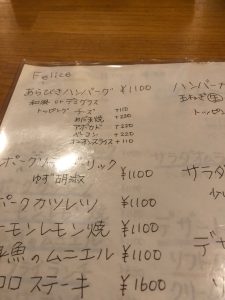 Felice
あらびきハンバーグ ¥1100
和風 or デミグラス
トッピング チーズ +110
めだま焼 +220
アボカド +220
ベーコン +220
オニオンスライス +110
ポーク
ゆず胡椒 ¥1100
ポークカツレツ ¥1100
レモン焼 ¥1100
魚のムニエル ¥1100
ステーキ ¥1600
ハンバー
トッピン
サラダ
デ